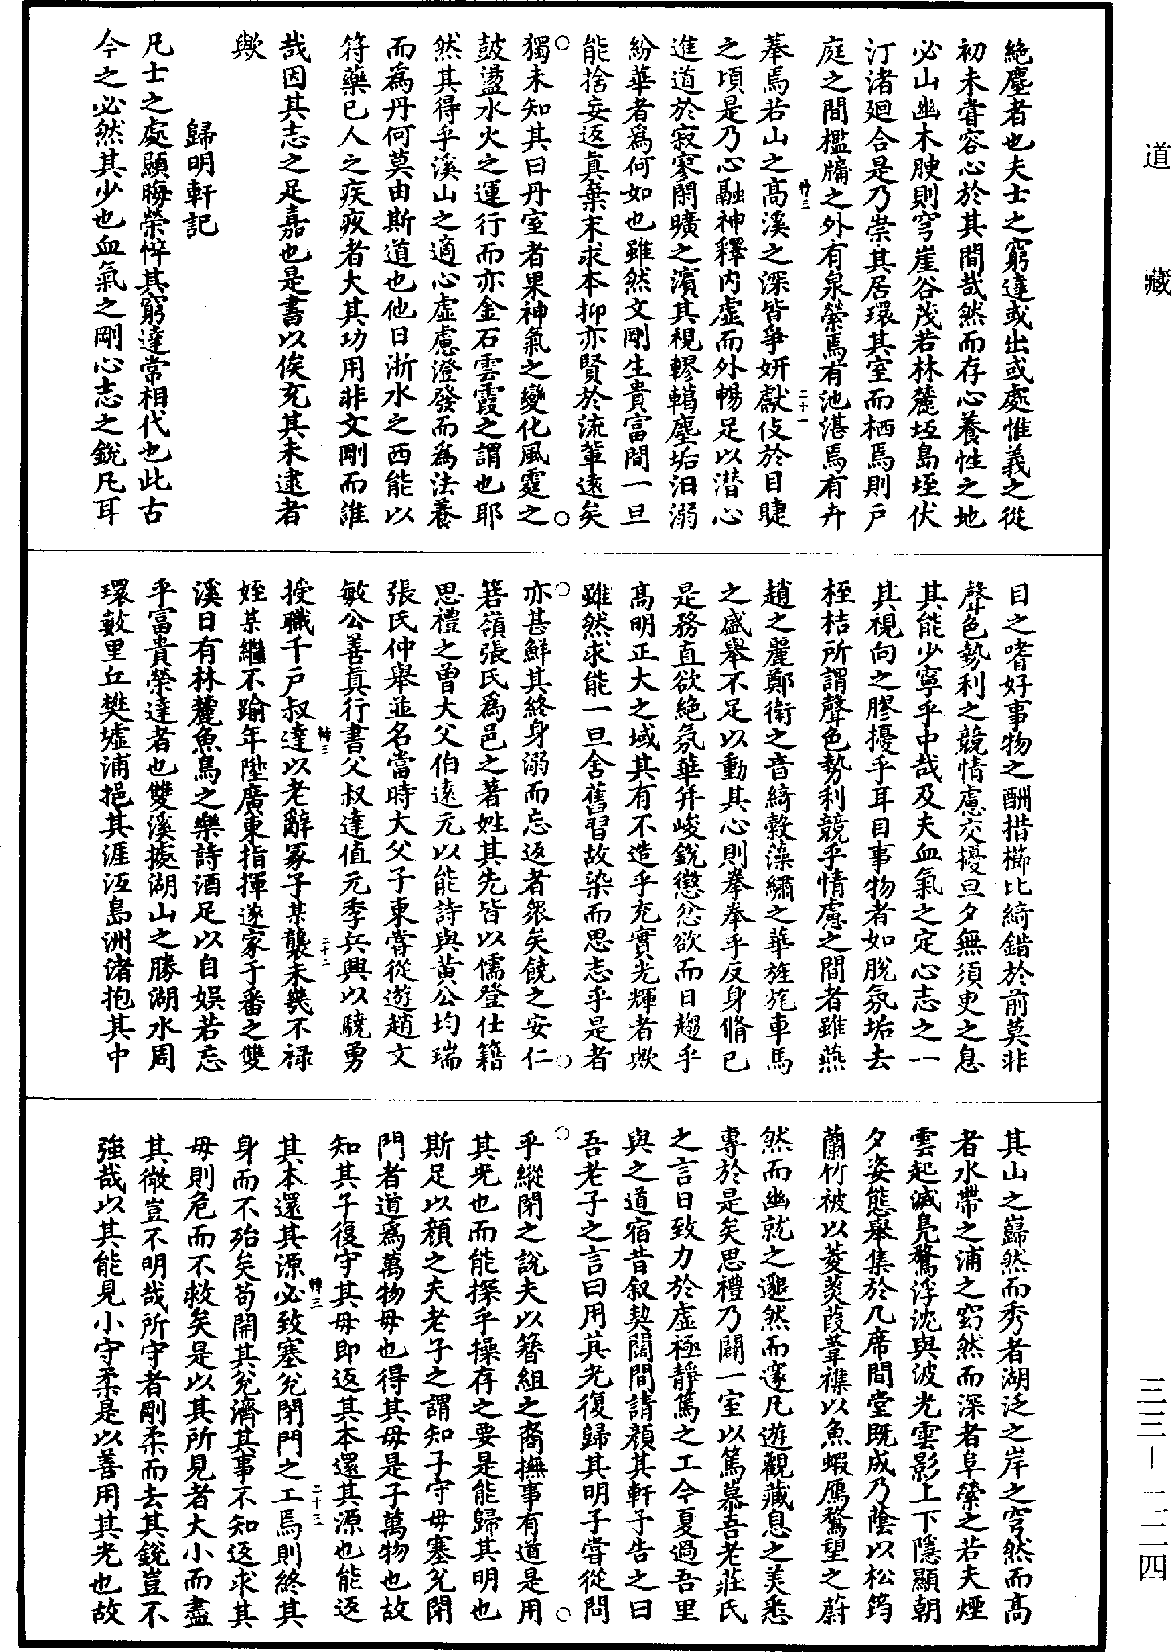 道藏
絕塵者也夫士之窮達或出或處惟義之從
初未嘗容心於其間哉然而存心養性之地
必山幽木腴則穹崖谷茂若林麓坻島垤伏
汀渚廻合是乃崇其居環其室而栖焉則戶
庭之間檻牖之外有泉縈焉有池湛焉有卉
峯焉若山之高溪之深皆爭妍獻伎於目睫
之頃是乃心融神釋內虛而外暢足以潛心
進道於寂寥閑曠之濱其視轇轕塵垢汨溺
紛華者為何如也雖然文剛生貴富間一旦
能捨妄返真棄末求本抑亦賢於流輩遠矣
獨未知其曰丹室者果神氣之變化風霆之
鼓盪水火之運行而亦金石雲霞之謂也耶
然其得乎溪山之適心虛慮澄發而為法養
而為丹何莫由斯道也他日浙水之西能以
符藥已人之疾疢者大其功用非文剛而誰
哉因其志之足嘉也是書以俟充其未逮者
歟
歸明軒記
凡士之處顯晦榮悴其窮達常相代也此古
今之必然其少也血氣之剛心志之銳凡耳
目之嗜好事物之酬措櫛比綺錯於前莫非
聲色勢利之競情慮交擾旦夕無須臾之息
其能少寧乎中哉及夫血氣之定心志之一
其視向之膠擾乎耳目事物者如脫氛垢去
桎梏所謂聲色勢利競乎情慮之間者雖燕
趙之麗鄭衛之音綺縠藻繡之華旌旄車馬
之盛舉不足以動其心則拳拳乎反身脩已
是務直欲絕氛華弃峻銳懲忿欲而日趨乎
高明正大之域其有不造乎充實光輝者歟
雖然求能一旦舍舊習故染而思志乎是者
亦甚鮮其終身溺而忘返者衆矣饒之安仁
箬嶺張氏為邑之著姓其先皆以儒登仕籍
思禮之曾大父伯遠元以能詩與黃公均瑞
張氏仲舉並名當時大父子東嘗從遊趙文
敏公善真行書父叔達值元季兵興以驍勇
授職千戶叔達以老辭冢子某襲未幾不祿
姪某繼不踰年陞廣東指揮遂家于番之雙
溪日有林麓魚鳥之樂詩酒足以自娛若忘
乎富貴榮達者也雙溪據湖山之勝湖水周
環數里丘樊墟浦挹其涯沍島洲渚抱其中
其山之巋然而秀者湖泛之岸之穹然而高
者水帶之浦之窈然而深者阜縈之若夫煙
雲起滅鳧鶩浮沈與波光雲影上下隱顯朝
夕姿態舉集於几席間堂既成乃蔭以松筠
蘭竹被以菱芡葭葦襍以魚蝦鴈鶩望之蔚
然而幽就之邈然而邃凡遊觀藏息之美悉
專於是矣思禮乃闢一室以篤慕吾老莊氏
之言日致力於虛極靜篤之工今夏過吾里
與之道宿昔叙契闊間請顏其軒予告之曰
吾老子之言曰用其光復歸其明子嘗從問
乎縱閉之說夫以簪組之裔撫事有道是用
其光也而能探乎操存之要是能歸其明也
斯足以顏之夫老子之謂知子守母塞兌閉
門者道為萬物母也得其母是子萬物也故
知其子復守其母即返其本還其源也能返
其本還其源必致塞兌閉門之工焉則終其
身而不殆矣苟開其兌濟其事不知返求其
母則危而不救矣是以其所見者大小而盡
其微豈不明哉所守者剛柔而去其銳豈不
強哉以其能見小守柔是以善用其光也故
三三—二二四